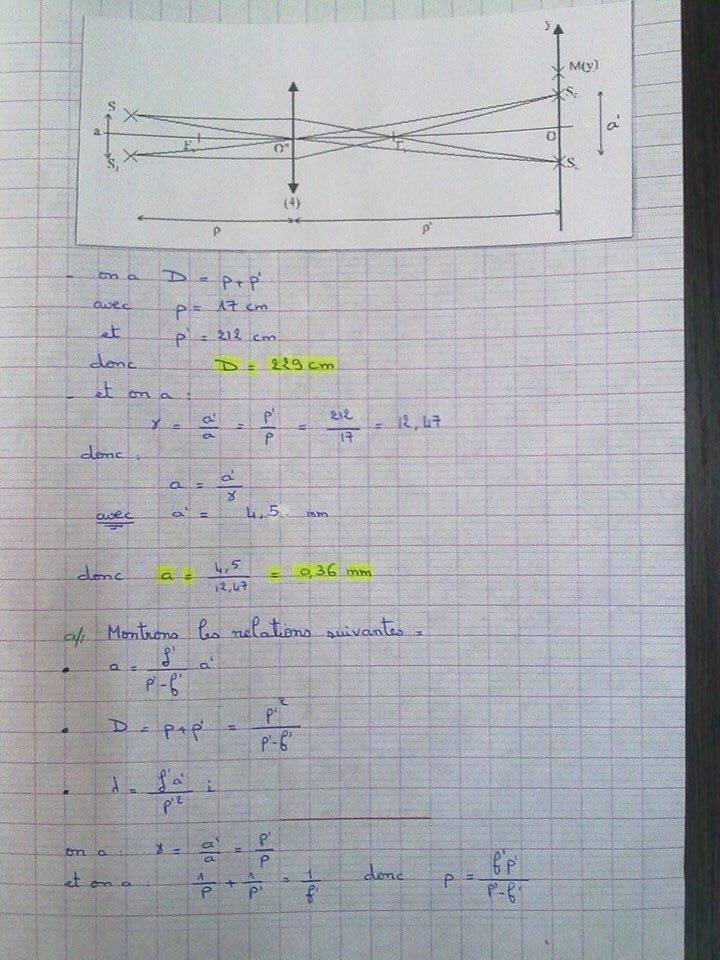 y
M(y)
S
S₂
a
a'
F
O
S₁
S₁
(4)
p
p'
- on a D = p + p'
avec p = 17 cm
et p' = 212 cm
donc D = 229 cm
- et on a :
γ = a'/a = p'/p = 212/17 = 12,47
donc :
a = a'/γ
avec a' = 4,5 mm
donc a = 4,5/12,47 = 0,36 mm
a/. Montrons les relations suivantes =
• a = f'/(p'-f') a'
• D = p + p' = p'²/(p'-f')
• λ = f'a'/p'² i
on a : γ = a'/a = p'/p
et on a : 1/p + 1/p' = 1/f' donc p = f'p'/(p'-f')